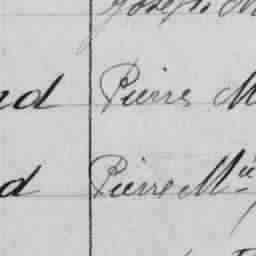 Joseph M
nd Pierre M
d Pierre M